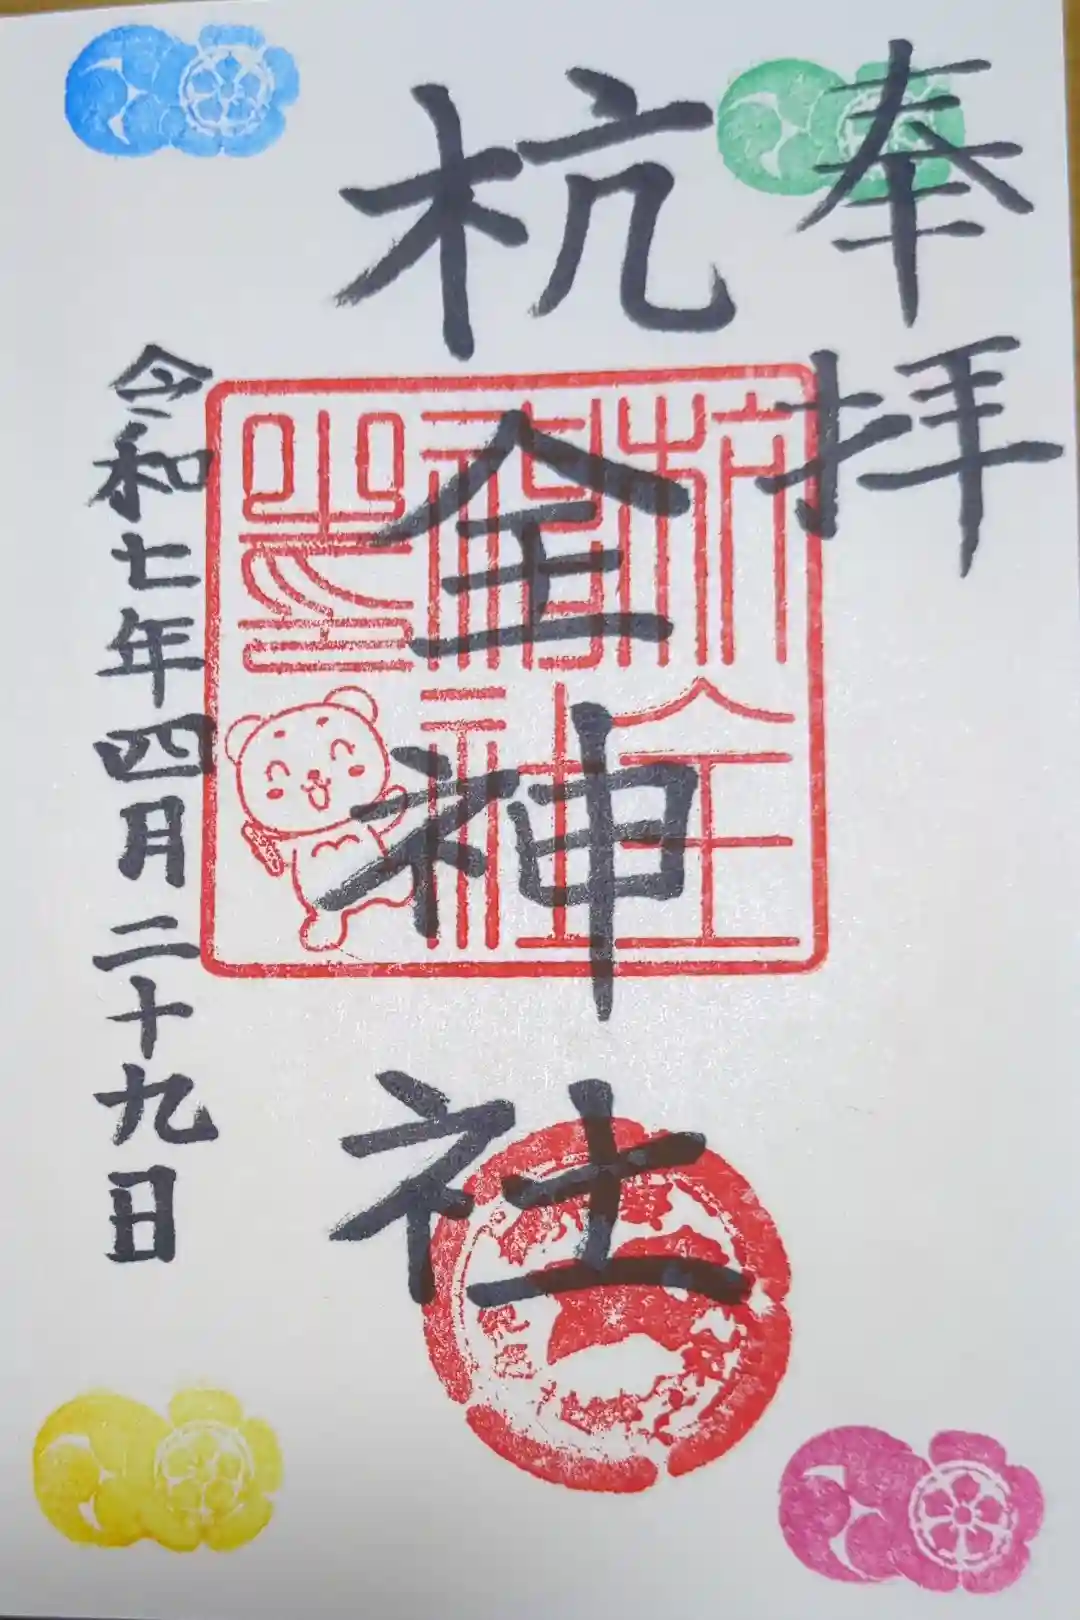 奉拝
杭全神社
令和七年四月二十九日
杭全
神社